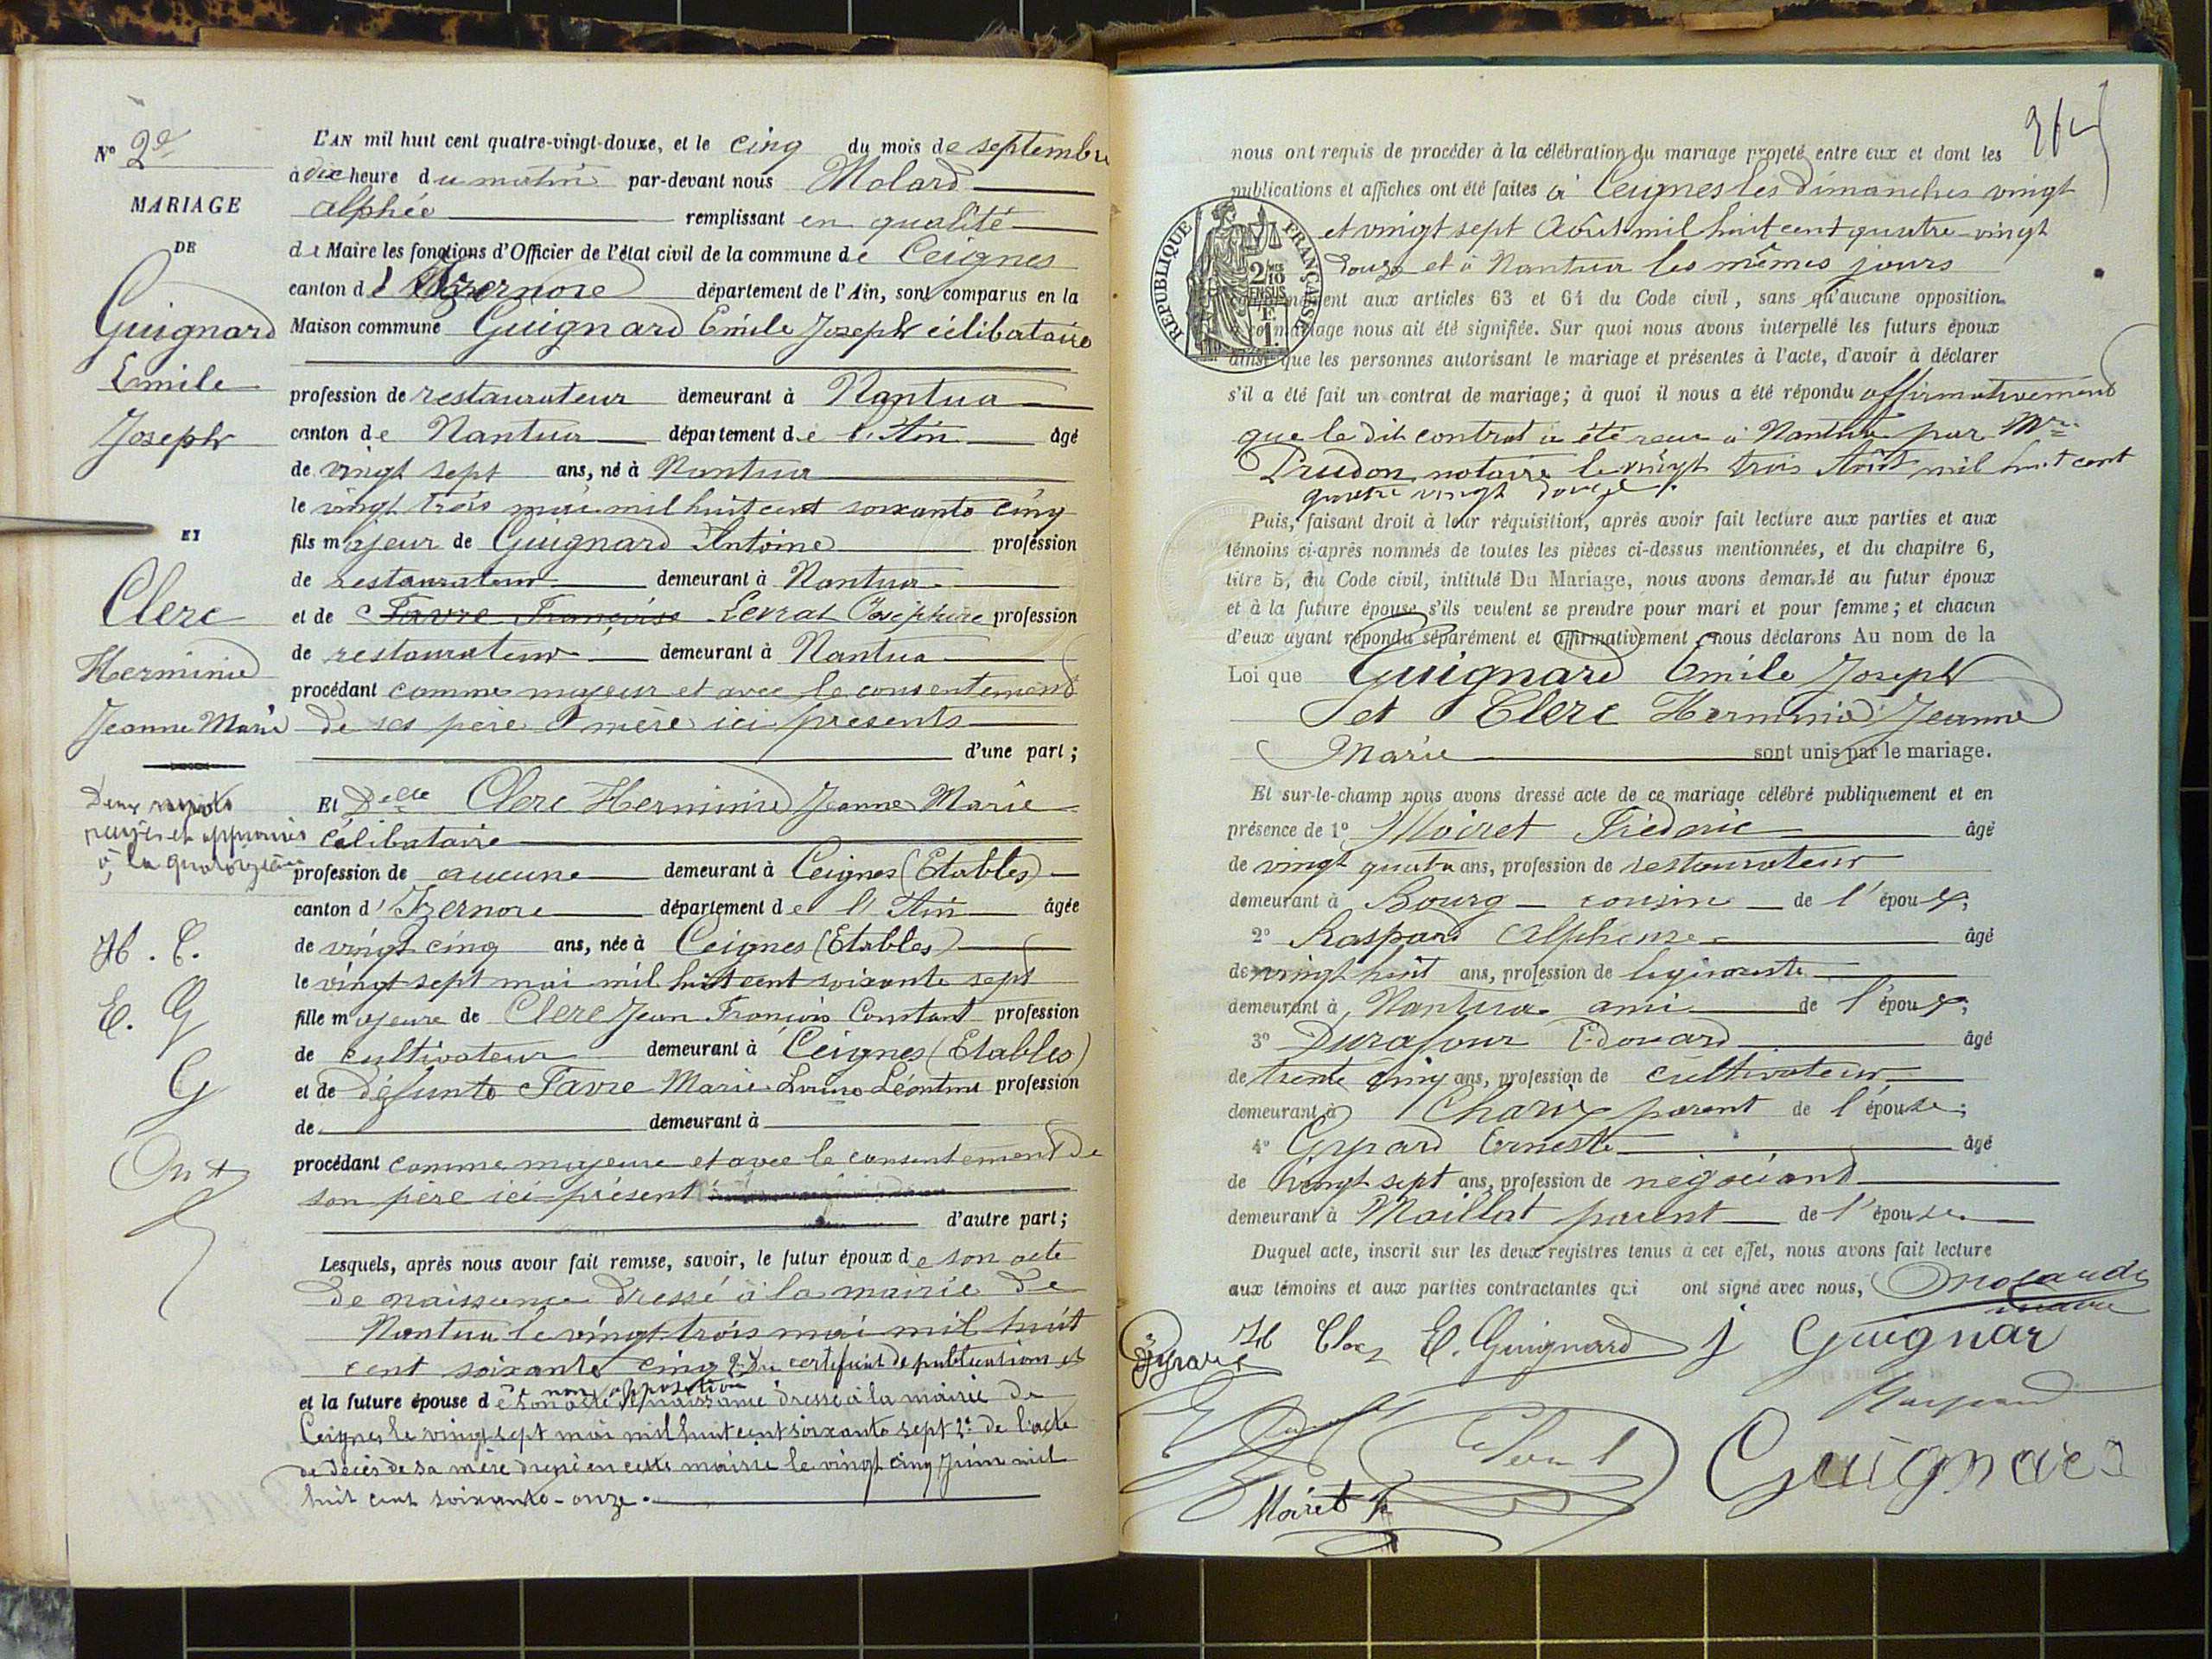 N° 2e
MARIAGE
DE
Guignard
Emile
Joseph
ET
Clerc
Herminie
Jeanne Marie
Deux mots
rayés et approuvés
à la quatorzième
H. C.
E. G
G
L'AN mil huit cent quatre-vingt-douze, et le cinq du mois de septembre
à dix heure du matin par-devant nous Molard
Alphée remplissant en qualité
de Maire les fonctions d'Officier de l'état civil de la commune de Ceignes
canton d'Izernore département de l'Ain, sont comparus en la
Maison commune Guignard Emile Joseph célibataire
profession de restaurateur demeurant à Nantua
canton de Nantua département de l'Ain âgé
de vingt sept ans, né à Nantua
le vingt trois mai mil huit cent soixante cinq
fils majeur de Guignard Antoine profession
de restaurateur demeurant à Nantua
et de Favre Françoise Levrat Josephine profession
de restaurateur demeurant à Nantua
procédant comme majeur et avec le consentement
de ses père et mère ici présents
d'une part ;
Et Delle Clerc Herminie Jeanne Marie
célibataire
profession de aucune demeurant à Ceignes (Etables)
canton d'Izernore département de l'Ain âgée
de vingt cinq ans, née à Ceignes (Etables)
le vingt sept mai mil huit cent soixante sept
fille majeure de Clerc Jean François Constant profession
de cultivateur demeurant à Ceignes (Etables)
et de défunte Favre Marie Louise Léontine profession
de demeurant à
procédant comme majeure et avec le consentement de
son père ici présent
d'autre part ;
Lesquels, après nous avoir fait remise, savoir, le futur époux de son acte
de naissance dressé à la mairie de
Nantua le vingt trois mai mil huit
cent soixante cinq 2° Du certificat de publications et
de non opposition
et la future épouse de son acte de naissance dressé à la mairie de
Ceignes le vingt sept mai mil huit cent soixante sept 2° de l'acte
de décès de sa mère dressé en cette mairie le vingt cinq Juin mil
huit cent soixante-onze.
nous ont requis de procéder à la célébration du mariage projeté entre eux et dont les
publications et affiches ont été faites à Ceignes les dimanches vingt
et vingt sept Août mil huit cent quatre-vingt
douze et à Nantua les mêmes jours
RÉPUBLIQUE FRANÇAISE
2/10 EN SUS
conformément aux articles 63 et 64 du Code civil, sans qu'aucune opposition
à ce mariage nous ait été signifiée. Sur quoi nous avons interpellé les futurs époux
ainsi que les personnes autorisant le mariage et présentes à l'acte, d'avoir à déclarer
s'il a été fait un contrat de mariage ; à quoi il nous a été répondu affirmativement
que le dit contrat a été reçu à Nantua par Me
Prudon notaire le vingt trois Août mil huit cent
quatre vingt douze.
Puis, faisant droit à leur réquisition, après avoir fait lecture aux parties et aux
témoins ci-après nommés de toutes les pièces ci-dessus mentionnées, et du chapitre 6,
titre 5, du Code civil, intitulé Du Mariage, nous avons demandé au futur époux
et à la future épouse s'ils veulent se prendre pour mari et pour femme ; et chacun
d'eux ayant répondu séparément et affirmativement, nous déclarons Au nom de la
Loi que Guignard Emile Joseph
et Clerc Herminie Jeanne
Marie sont unis par le mariage.
Et sur-le-champ nous avons dressé acte de ce mariage célébré publiquement et en
présence de 1° Moiret Frédéric âgé
de vingt quatre ans, profession de restaurateur
demeurant à Bourg cousin de l'époux ;
2° Raspand Alphonse âgé
de vingt huit ans, profession de
demeurant à Nantua ami de l'époux ;
3° Durafour Edouard âgé
de trente cinq ans, profession de cultivateur
demeurant à Charix parent de l'épouse ;
4° Ernest âgé
de vingt sept ans, profession de négociant
demeurant à Maillat parent de l'épouse
Duquel acte, inscrit sur les deux registres tenus à cet effet, nous avons fait lecture
aux témoins et aux parties contractantes qui ont signé avec nous,
maire
H Clerc E. Guignard J Guignar
Raspand
Guignard
Moiret F